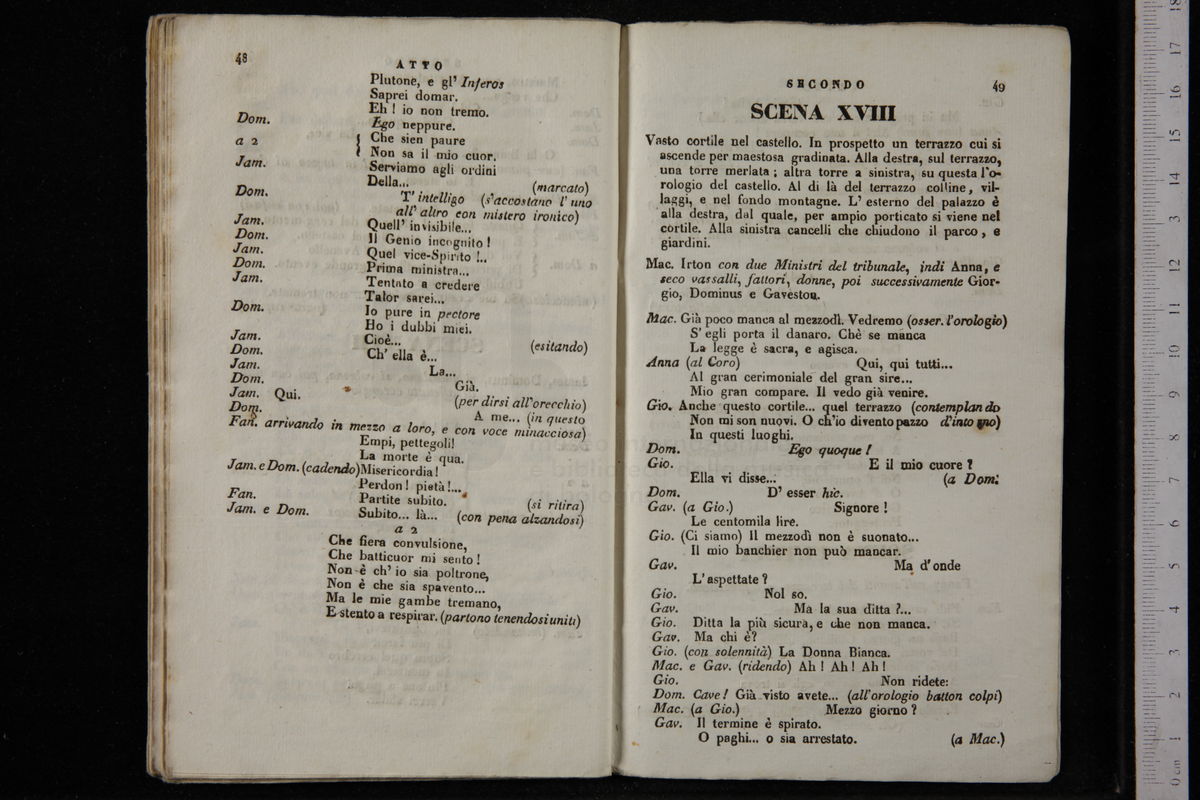 48
ATTO
Plutone, e gl' Inferos
Saprei domar.
Eh! io non tremo.
Dom. Ego neppure.
a 2 { Che sien paure
Non sa il mio cuor.
Jam. Serviamo agli ordini
Della... (marcato)
Dom. T' intelligo (s'accostano l' uno
all' altro con mistero ironico)
Jam. Quell' invisibile...
Dom. Il Genio incognito!
Jam. Quel vice-Spirito!..
Dom. Prima ministra...
Jam. Tentato a credere
Talor sarei...
Dom. Io pure in pectore
Ho i dubbi miei.
Jam. Cioè... (esitando)
Dom. Ch' ella è...
Jam. La...
Dom. Già.
Jam. Qui. (per dirsi all'orecchio)
Dom. A me... (in questo
Fan. arrivando in mezzo a loro, e con voce minacciosa)
Empi, pettegoli!
La morte è qua.
Jam. e Dom. (cadendo) Misericordia!
Perdon! pietà!...
Fan. Partite subito. (si ritira)
Jam. e Dom. Subito... là... (con pena alzandosi)
a 2
Che fiera convulsione,
Che batticuor mi sento!
Non è ch' io sia poltrone,
Non è che sia spavento...
Ma le mie gambe tremano,
E stento a respirar. (partono tenendosi uniti)
SECONDO 49
SCENA XVIII
Vasto cortile nel castello. In prospetto un terrazzo cui si
ascende per maestosa gradinata. Alla destra, sul terrazzo,
una torre merlata; altra torre a sinistra, su questa l'o-
rologio del castello. Al di là del terrazzo colline, vil-
laggi, e nel fondo montagne. L' esterno del palazzo è
alla destra, dal quale, per ampio porticato si viene nel
cortile. Alla sinistra cancelli che chiudono il parco, e
giardini.
Mac. Irton con due Ministri del tribunale, indi Anna, e
seco vassalli, fattori, donne, poi successivamente Gior-
gio, Dominus e Gaveston.
Mac. Già poco manca al mezzodì. Vedremo (osser. l'orologio)
S' egli porta il danaro. Chè se manca
La legge è sacra, e agisca.
Anna (al Coro) Qui, qui tutti...
Al gran cerimoniale del gran sire...
Mio gran compare. Il vedo già venire.
Gio. Anche questo cortile... quel terrazzo (contemplando
Non mi son nuovi. O ch'io divento pazzo d'intorno)
In questi luoghi.
Dom. Ego quoque!
Gio. E il mio cuore?
Ella vi disse... (a Dom.
Dom. D' esser hic.
Gav. (a Gio.) Signore!
Le centomila lire.
Gio. (Ci siamo) Il mezzodì non è suonato...
Il mio banchier non può mancar.
Gav. Ma d' onde
L' aspettate?
Gio. Nol so.
Gav. Ma la sua ditta?...
Gio. Ditta la più sicura, e che non manca.
Gav. Ma chi è?
Gio. (con solennità) La Donna Bianca.
Mac. e Gav. (ridendo) Ah! Ah! Ah!
Gio. Non ridete:
Dom. Cave! Già visto avete... (all'orologio batton colpi)
Mac. (a Gio.) Mezzo giorno?
Gav. Il termine è spirato.
O paghi... o sia arrestato. (a Mac.)